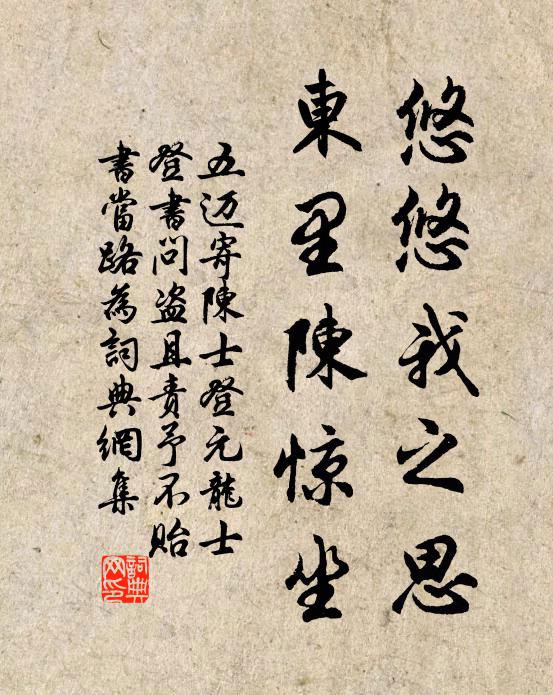 悠悠我之思
東里陳惊坐
五迈寄陳士登元龍士
登書问盗且责予不贻
書當路為詞典網集
詞典
网印